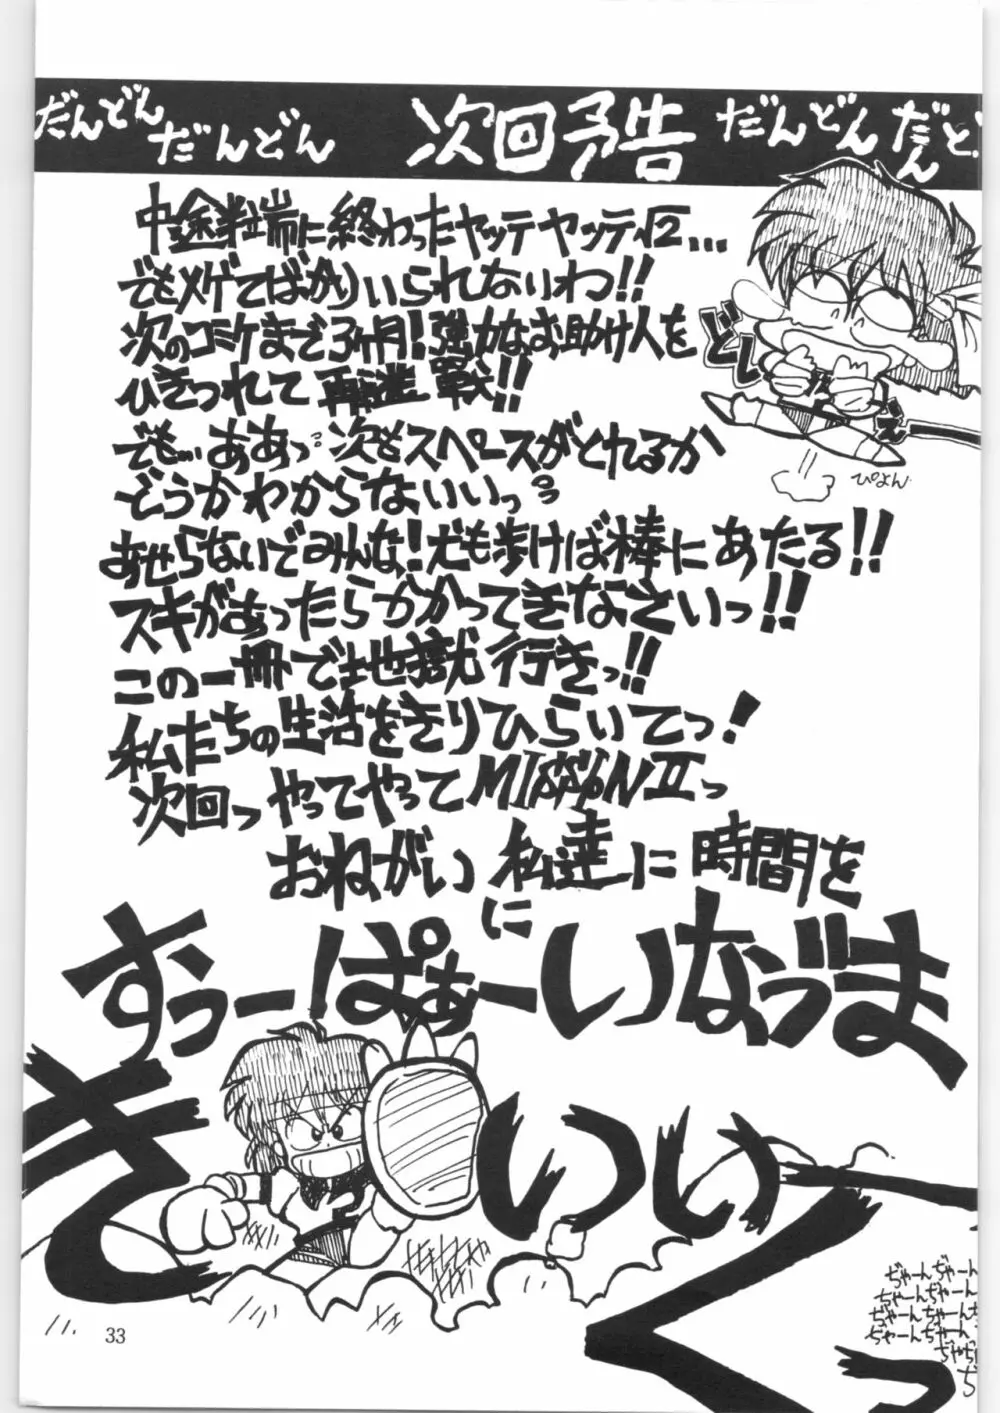 だんどん だんどん 次回予告 だんどん だんど
中途半端に終わったヤッテヤッテ√2…
でもメゲてばかりいられないわ!!
次のコミケまで3ヶ月!強力なお助け人を
ひきつれて再進戦!!
でも…ああっ 次もスペースがとれるか
どうかわからないいっ
あせらないでみんな!犬も歩けば棒にあたる!!
スキがあったらかかってきなさいっ!!
この一冊で地獄行きっ!!
私たちの生活をきりひらいてっ!
次回っ やってやってMISSION Ⅱっ
おねがい 私達に時間を
に
すぅーぱぁーいなづま
きいいくっ
ぴよん
ぢゃーんぢゃーん
ぢゃーんぢゃーん
ぢゃーんぢゃーん
ぢゃーんぢゃーん
ぢゃぢ
ぢ
33